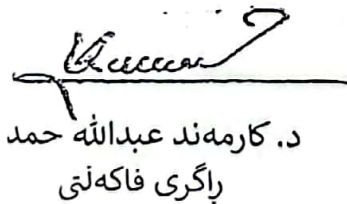 د. کارمەند عبدالله حمد
ڕاگری فاکەڵتی